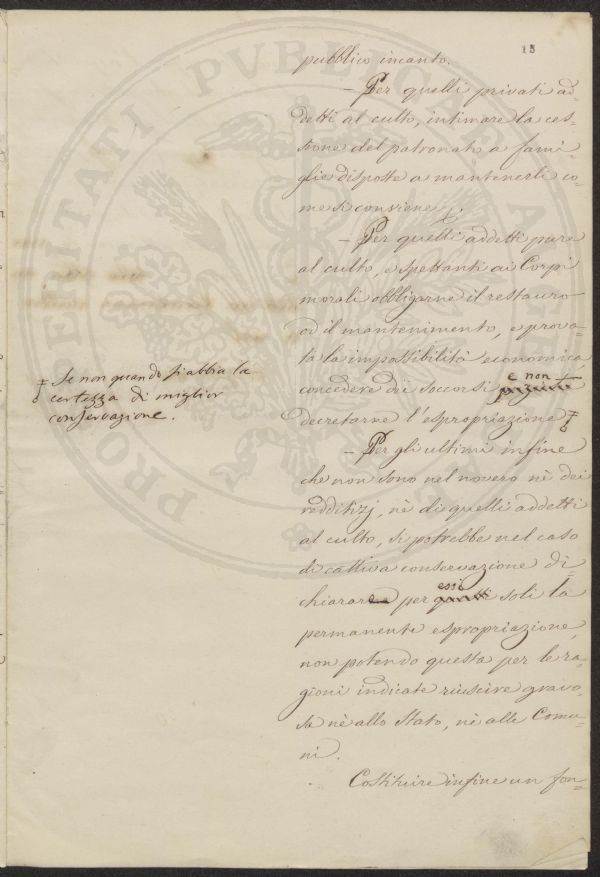 15
pubblico incanto.
— Per quelli privati ad=
detti al culto, intimare la ces=
sione del patronato a fami=
glie disposte a mantenerli co=
me si conviene.
— Per quelli addetti pure
al culto, e spettanti ai Corpi
morali obbligarne il restauro
od il mantenimento, e prova=
ta la impossibilità economica
e non
concedere dei soccorsi
decretarne l'espropriazione
— Per gli ultimi infine
che non sono nel novero nè dei
redditizj, nè di quelli addetti
al culto, si potrebbe nel caso
di cattiva conservazione di=
essi
chiarare per questi soli la
permanente espropriazione,
non potendo questa per le ra=
gioni indicate riuscire gravo=
sa nè allo Stato, nè alle Comu=
ni.
Costituire infine un fon=
Se non quando si abbia la
certezza di miglior
conservazione.
PROSPERITATI PVBLICAE AVGENDAE